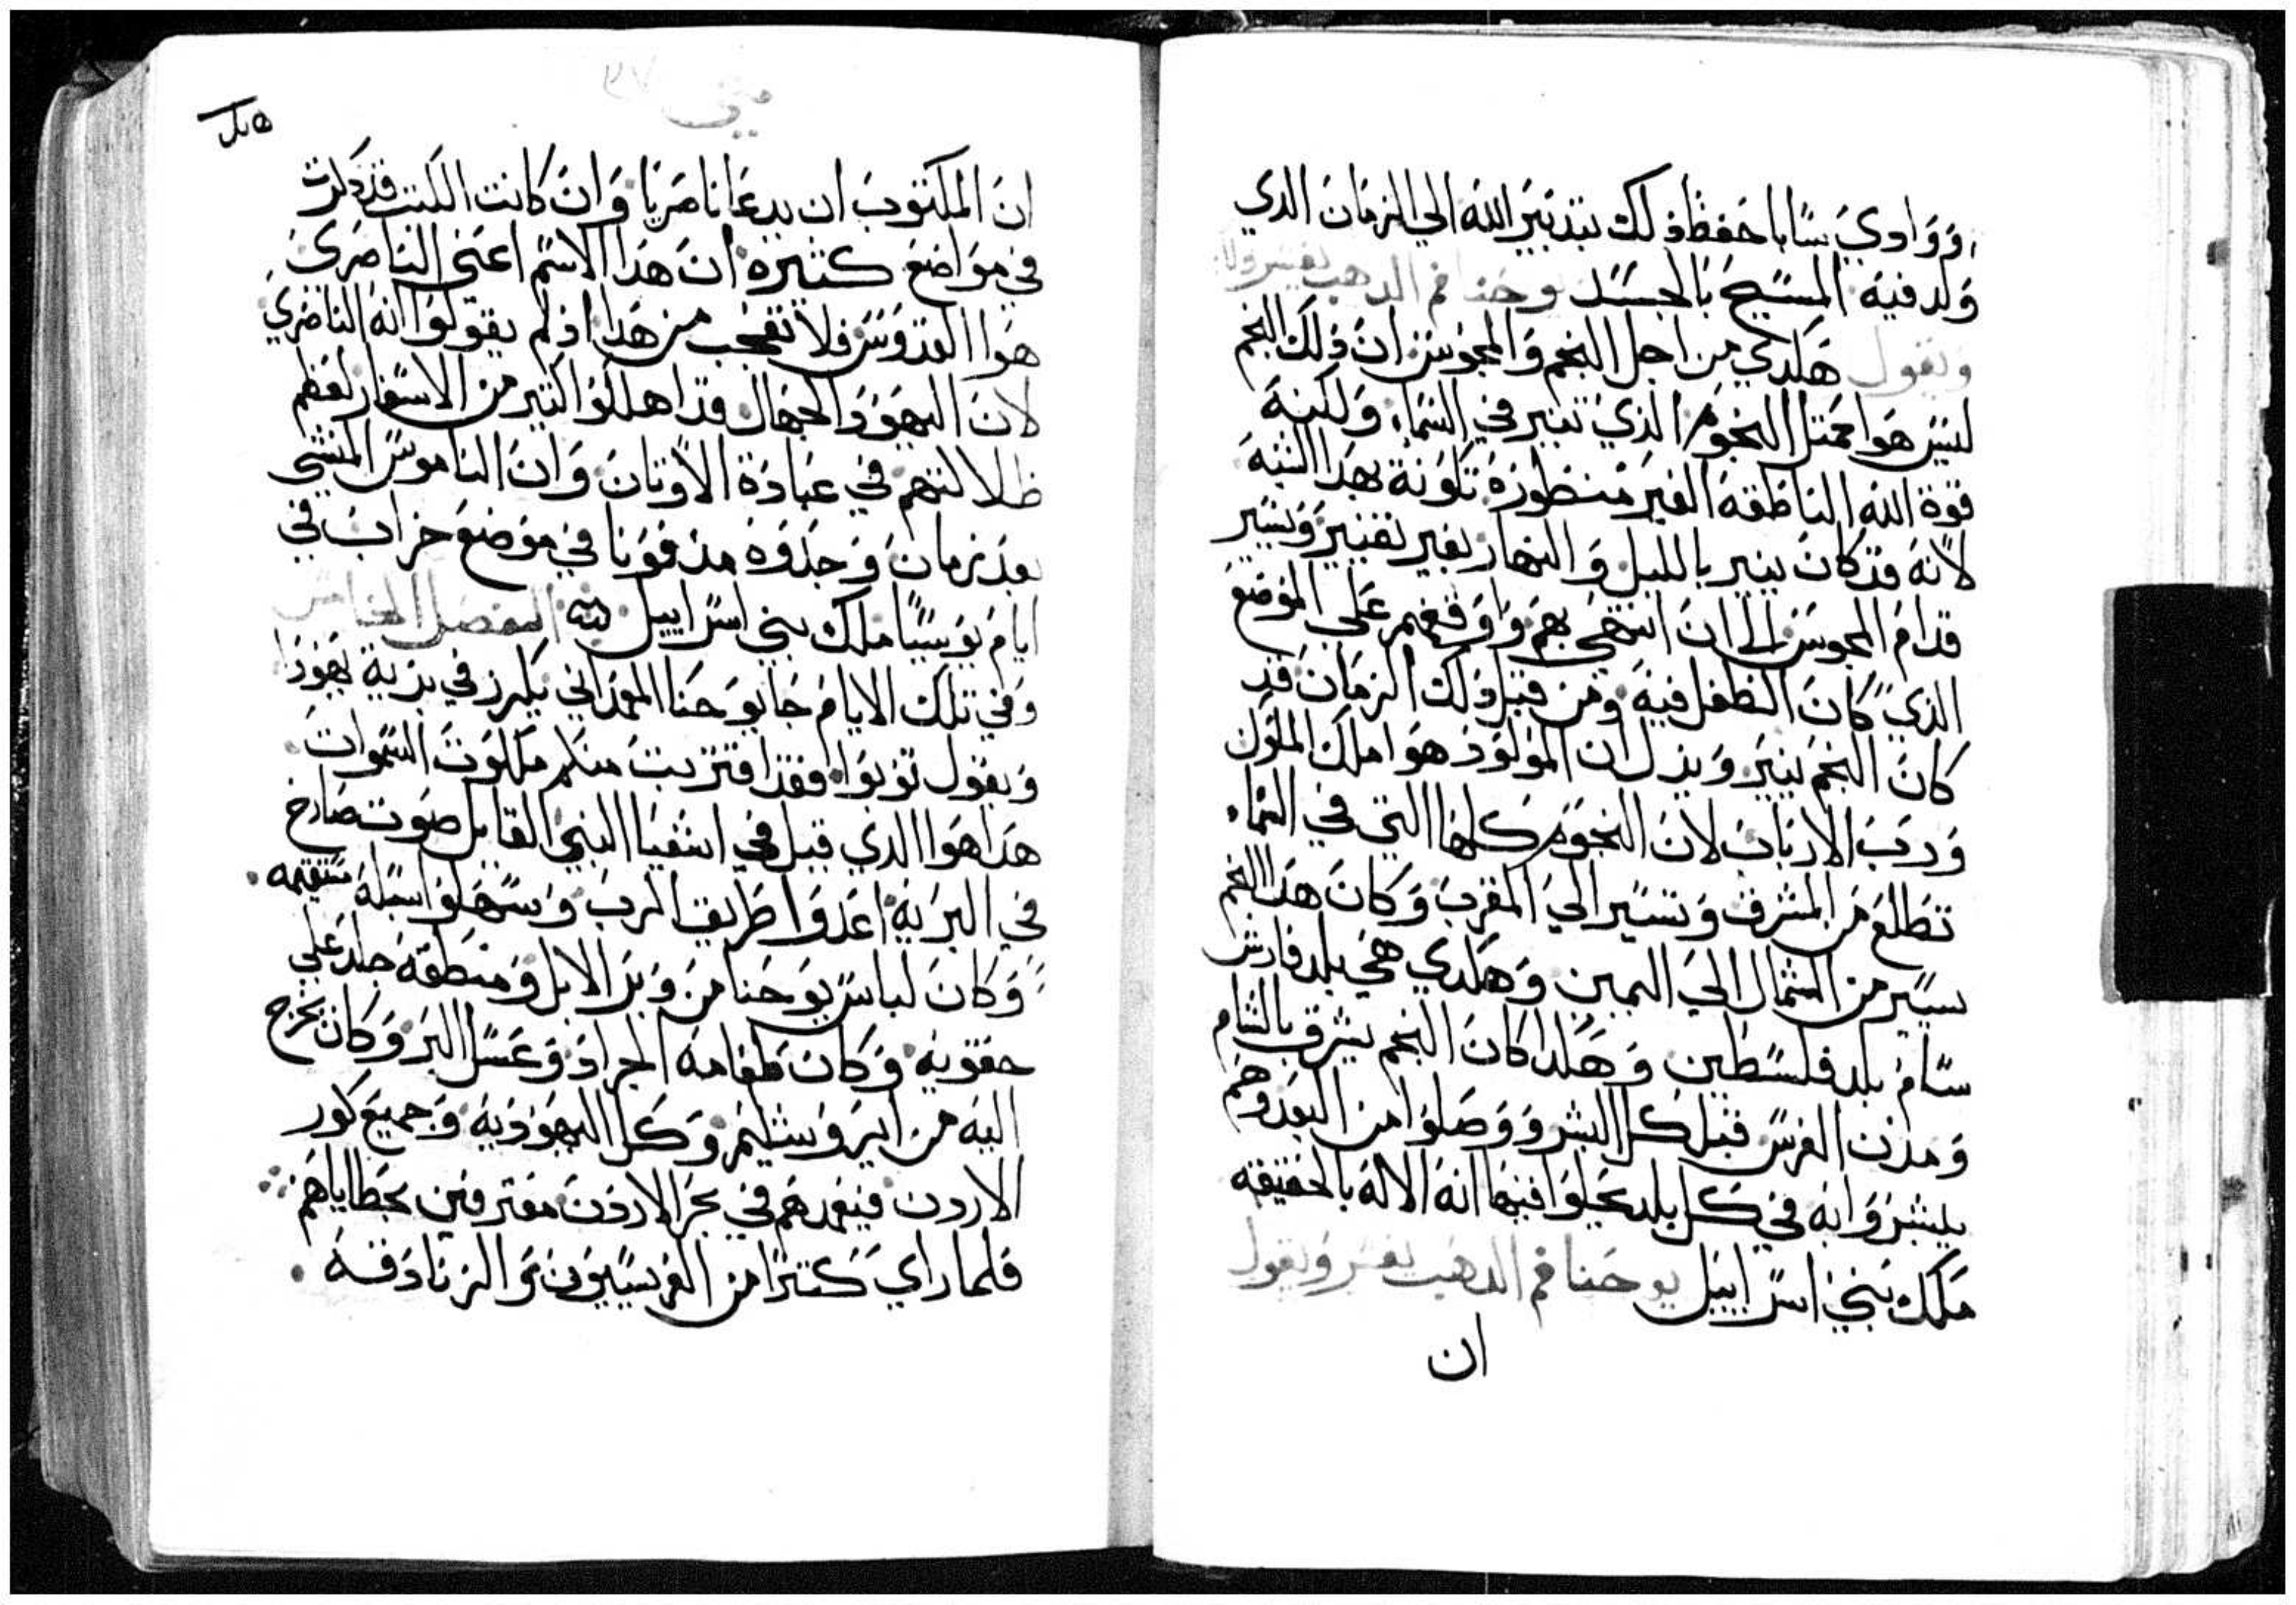 ووادي سابا حفظ ذلك بتدبير الله الي الزمان الدي
ولد فيه المسيح بالجسد يوحنا فم الدهب يفسر ولا
ويقول هكدي من اجل النجم والمجوس ان ذلك النجم
ليس هوا كمتل النجوم الذي تنير في السماء ولكنه
قوة الله الناطقه الغير منظورة تكونة بهدا الشبه
لانه قد كان ينير بالليل والنهار بغير تغيير ويسير
قدام المجوس الي ان انتهي بهم واوقفهم علي الموضع
الذي كان الطفل فيه ومن قبل ذلك الزمان قد
كان النجم ينير ويدل ان المولود هوا ملك الملوك
ورب الارباب لان النجوم كلها التي في السماء
تطلع من المشرق وتسير الي المغرب وكان هدا النجم
يسير من الشمال الي اليمين وهكدي هي بلد فارس
سام بلد فلسطين وهكدا كان النجم يشرق بالشام
ومدن الفرس قبل كل البشر ووصلوا من البعد وهم
يبشروا به في كل بلد يحلوا فيها انه الاله بالحقيقه
ملك بني اسراييل يوحنا فم الدهب يفسر ويقول
ان
متي ٢٧
ان المكتوب ان يدعا ناصريا وان كانت الكتب قد ذكرت
في مواضع كتيره ان هدا الاسم اعني الناصري
هوا القدوس فلا تعجب من هدا اذ لم يقولوا انه الناصري
لان اليهود الجهال قد اهلكوا كتير من الاسفار لعظم
ظلالتهم في عبادة الاوتان وان الناموس المنسي
بعد زمان وجدوه مدفونا في موضع خراب في
ايام يوسيا ملك بني اسراييل الفصل الخامس
وفي تلك الايام جا يوحنا المعمداني يكرز في برية يهودا
ويقول توبوا فقد اقتربت منكم ملكوت السموات
هدا هوا الدي قيل في اشعيا النبي القايل صوت صارخ
في البريه اعدوا طريق الرب وسهلوا سبله مستقيمه
وكان لباس يوحنا من وبر الابل ومنطقه جلد علي
حقويه وكان طعامه الجراد وعسل البر وكان يخرج
اليه من ايروشليم وكل اليهوديه وجميع كور
الاردن فيعمدهم في بحر الاردن معترفين بخطاياهم
فلما راي كتيرا من الفريسيون والزنادقه